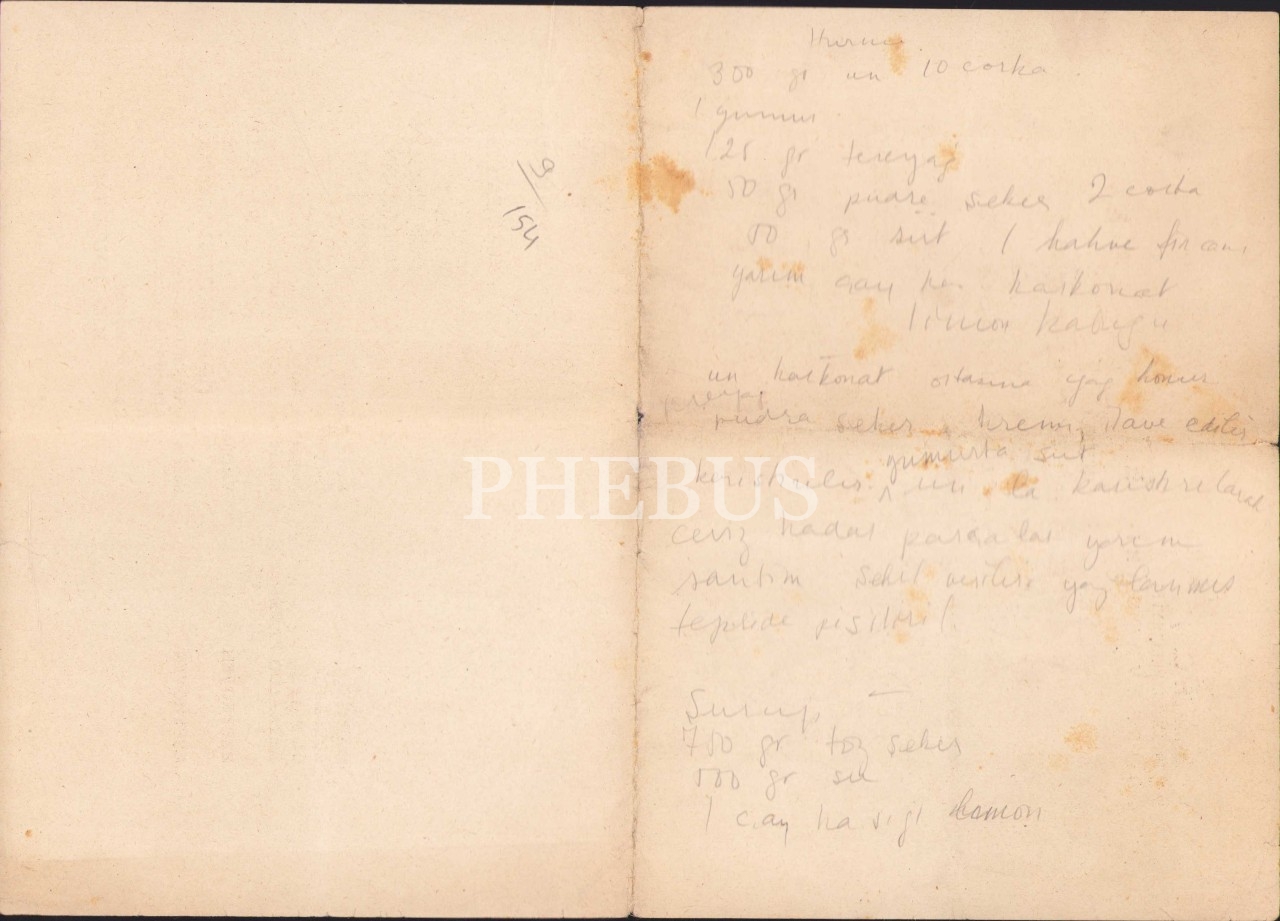 9/154
Hurma
300 gr un 10 corka
1 yumur
125 gr tereyag
50 gr pudra seker 2 corba
50 gr süt 1 kahve fincanı
yarım çay ka. karbonat
limon kabugu
un karbonat ortasına yag konur
tereyag
pudra seker, krem, ilave edilir
yumurta süt
karıstırılır un la karıstırılarak
ceviz kadar parçalar yarım
santim sekil verilir yaglanmıs
tepside pişirilir.
Surup
750 gr toz seker
500 gr su
1 çay kasıgı limon
PHEBUS